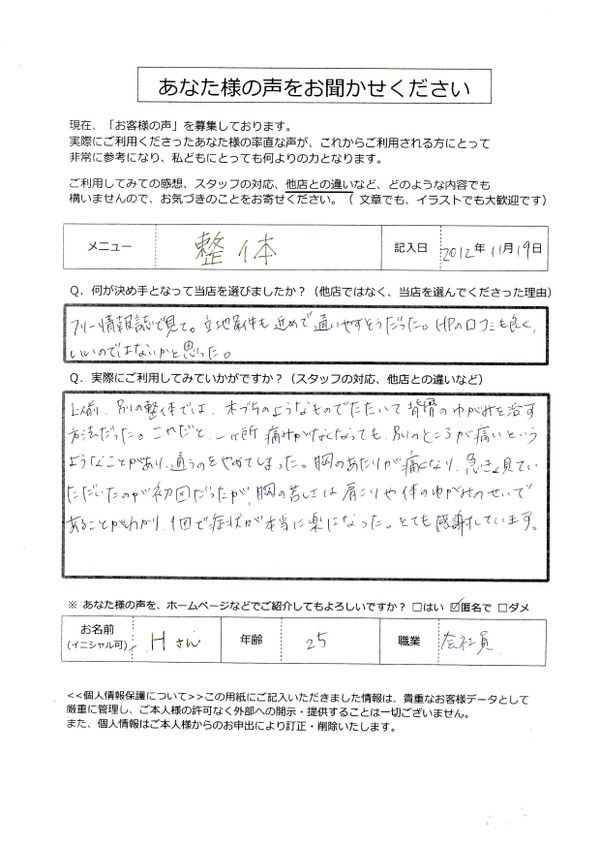 あなた様の声をお聞かせください
現在、「お客様の声」を募集しております。
実際にご利用くださったあなた様の率直な声が、これからご利用される方にとって
非常に参考になり、私どもにとっても何よりの力となります。
ご利用してみての感想、スタッフの対応、他店との違いなど、どのような内容でも
構いませんので、お気づきのことをお寄せください。（ 文章でも、イラストでも大歓迎です）
メニュー 整体 記入日 2012年 11月19日
Ｑ．何が決め手となって当店を選びましたか？（他店ではなく、当店を選んでくださった理由）
フリー情報誌で見て。立地条件も近めで通いやすそうだった。HPの口コミも良く、
いいのではないかと思った。
Ｑ．実際にご利用してみていかがですか？（スタッフの対応、他店との違いなど）
以前、別の整体では、木づちのようなものでたたいて背骨のゆがみを治す
方法だった。これだと、一ヶ所痛みがなくなっても、別のところが痛いという
ようなことがあり、通うのをやめてしまった。胸のあたりが痛くなり、急きょ見てい
ただいたのが初回だったが、胸の苦しさは肩こりや体のゆがみのせいで
あることがわかり、1回で症状が本当に楽になった。とても感謝しています。
※ あなた様の声を、ホームページなどでご紹介してもよろしいですか？ □はい ☑匿名で □ダメ
お名前 Hさん 年齢 25 職業 会社員
(イニシャル可)
<<個人情報保護について>>この用紙にご記入いただきました情報は、貴重なお客様データとして
厳重に管理し、ご本人様の許可なく外部への開示・提供することは一切ございません。
また、個人情報はご本人様からのお申出により訂正・削除いたします。